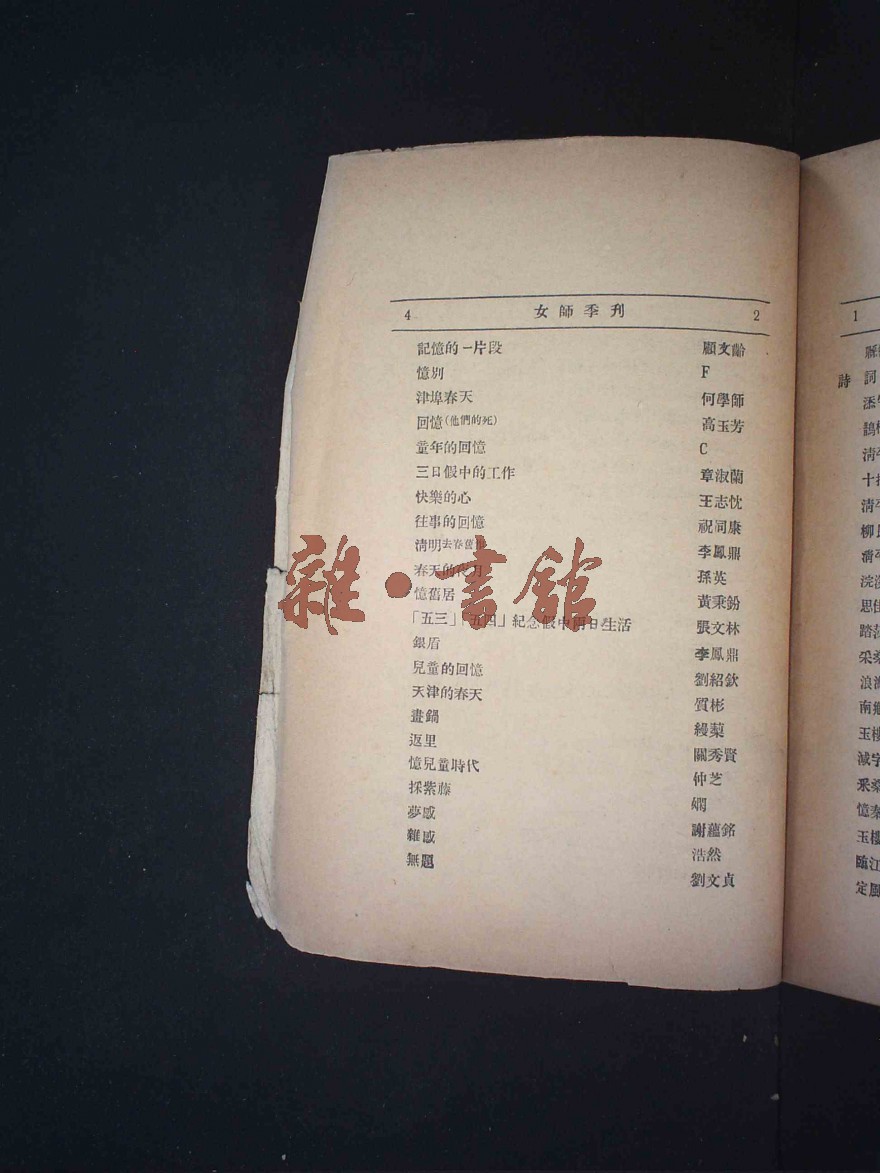 4 女師季刊 2
記憶的一片段 顧文齡
憶別 F
津埠春天 何學師
回憶(他們的死) 高玉芳
童年的回憶 C
三日假中的工作 章淑蘭
快樂的心 王志忱
往事的回憶 祝同康
清明去春舊 李鳳鼎
春天的花月 孫英
憶舊居 黃秉鈖
「五三」「五四」紀念假中四日生活 張文林
銀盾 李鳳鼎
兒童的回憶 劉紹欽
天津的春天 質彬
畫鍋 縵蘂
返里 關秀賢
憶兒童時代 仲芝
採紫藤 嫻
夢感 謝蘊銘
雜感 浩然
無題 劉文貞
雜·書館
1
詩 詞
清
十
清
柳
清
浣
思
踏
采桑
浪
南
玉樓
減字
采桑
憶秦
玉樓
臨江
定風